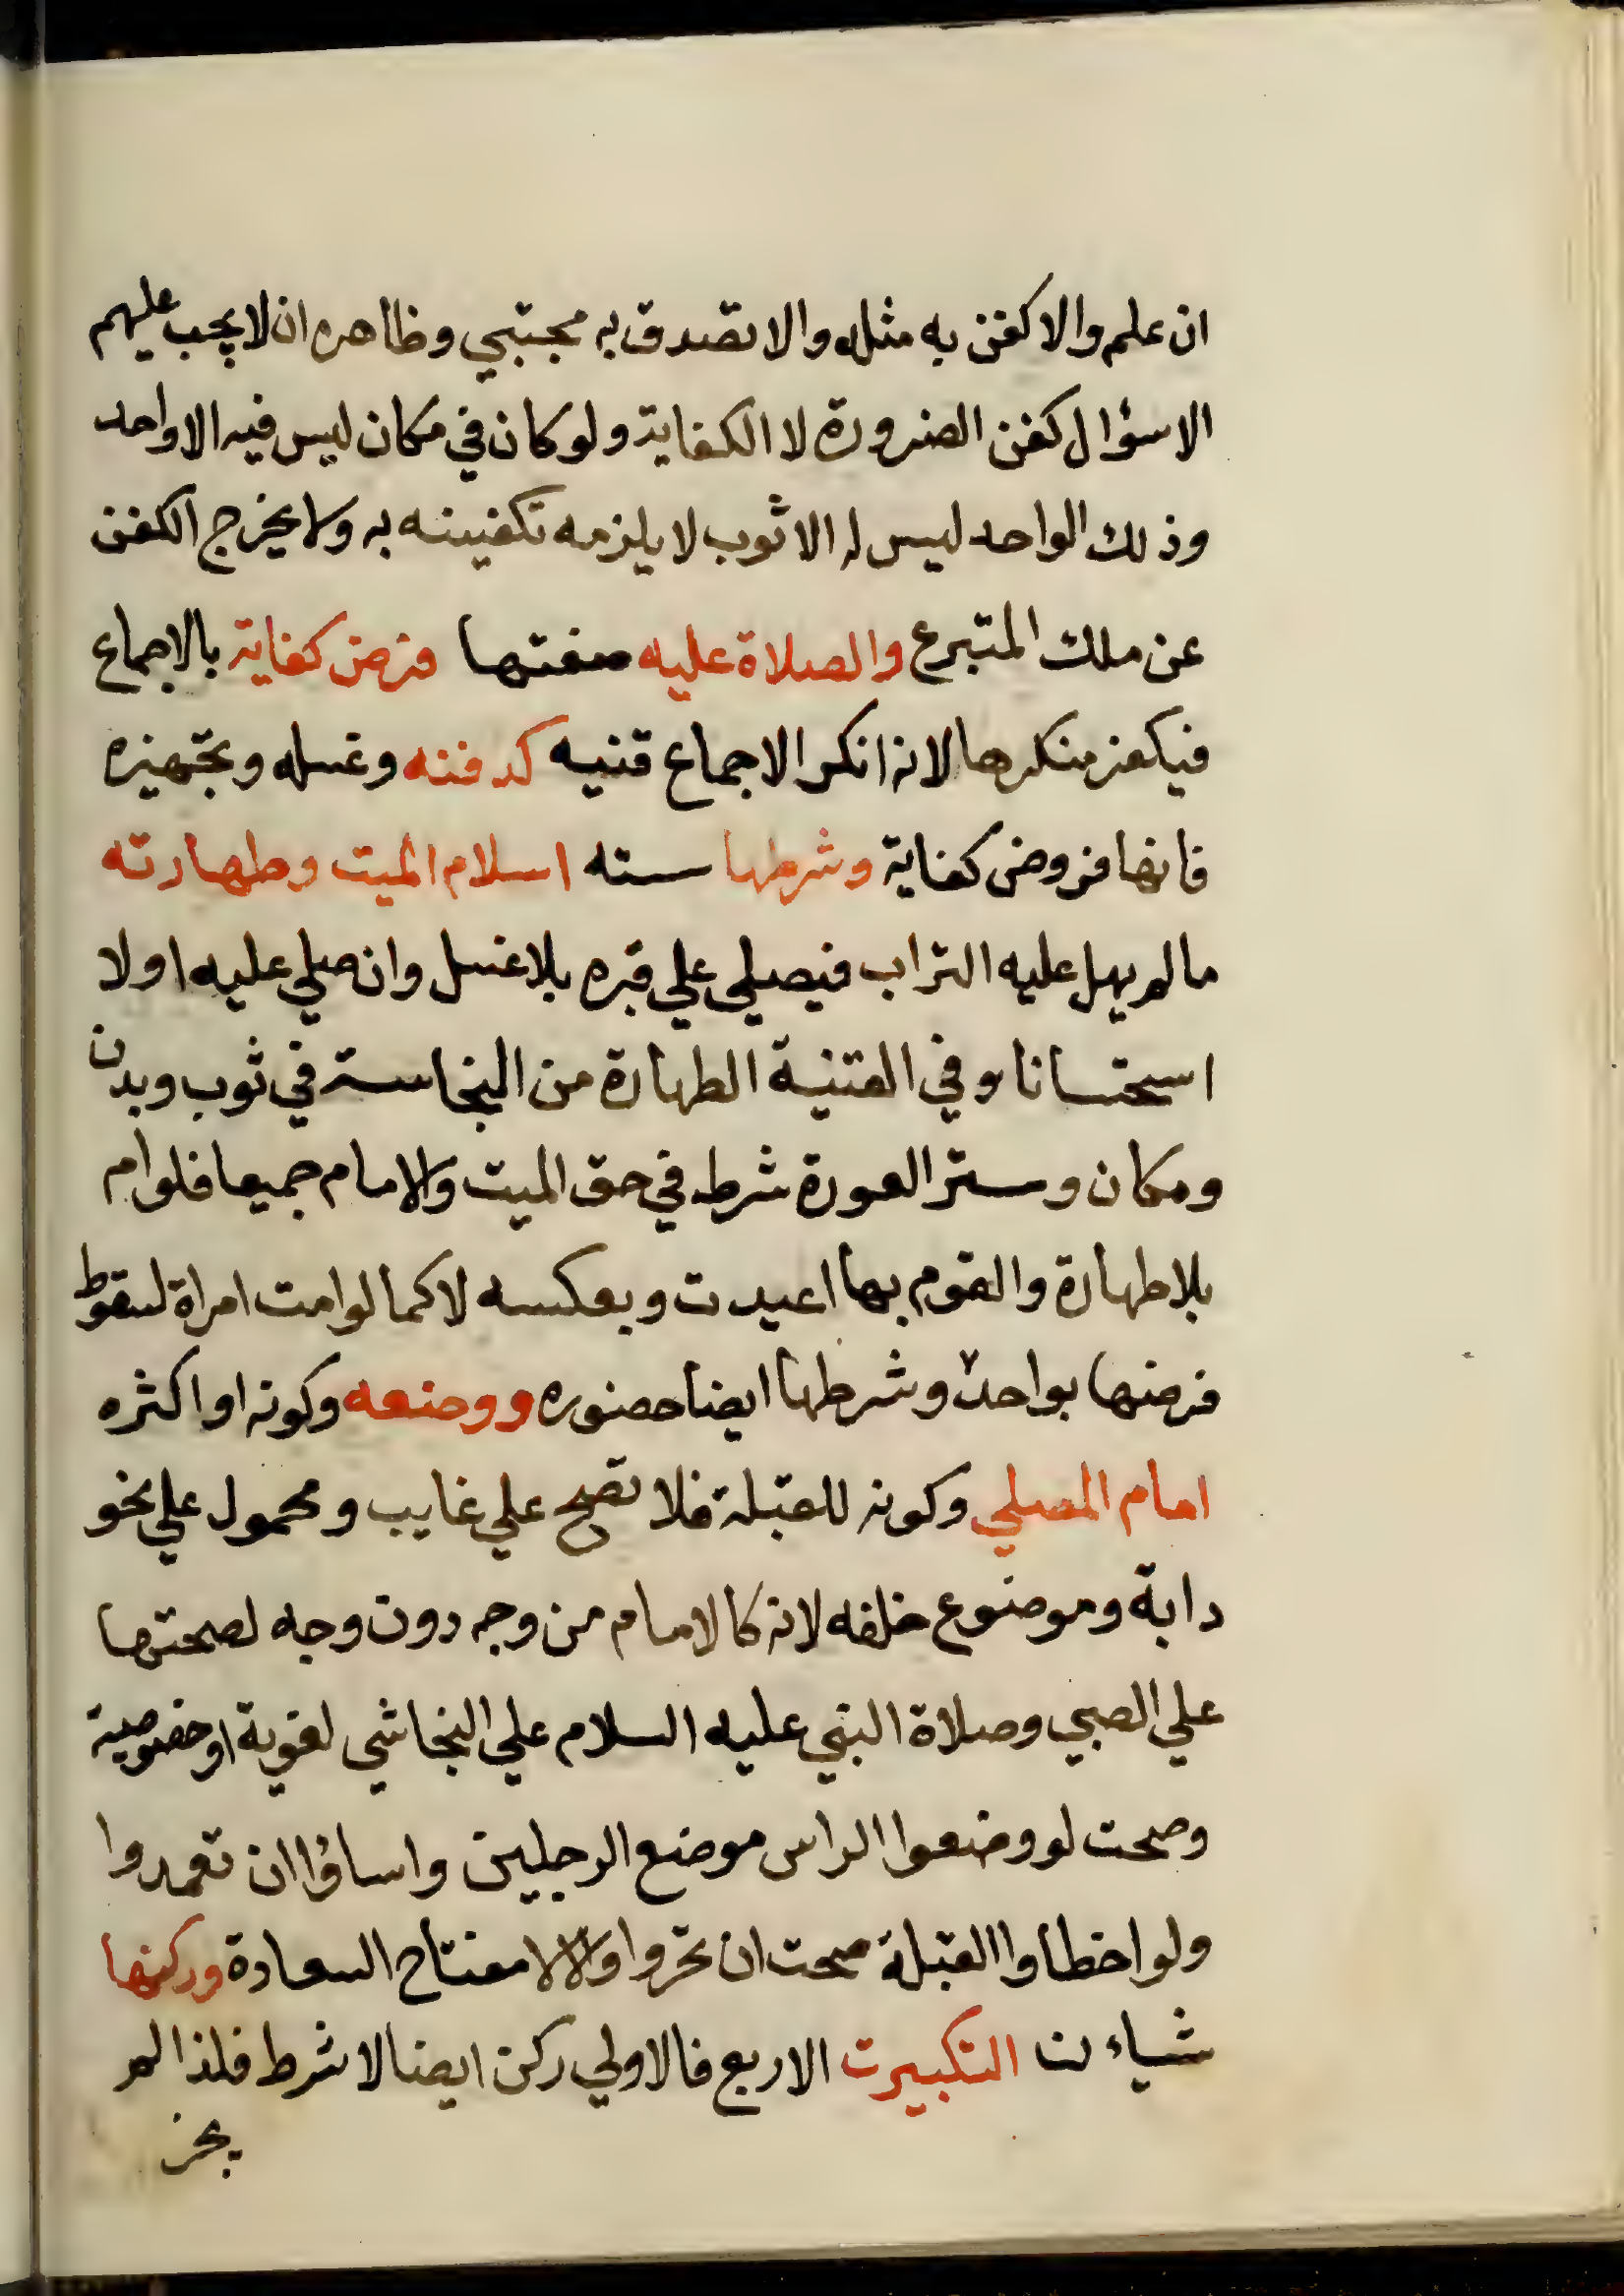 ان علم والا كفن به مثله والا تصدق به مجتبي وظاهره ان لا يجب عليهم
الا سؤال كفن الضرورة لا الكفاية ولو كان في مكان ليس فيه الا واحد
وذلك الواحد ليس له الا ثوب لا يلزمه تكفينه به ولا يخرج الكفن
عن ملك المتبرع والصلاة عليه صفتها فرض كفاية بالاجماع
فيكفر منكرها لانه انكر الاجماع قنيه كدفنه وغسله وتجهيزه
فانها فروض كفاية وشرطها سته اسلام الميت وطهارته
ما لم يهل عليه التراب فيصلي علي قبره بلا غسل وان صلي عليه اولا
استحسانا وفي القنية الطهارة من النجاسة في ثوب وبدن
ومكان وستر العورة شرط في حق الميت والامام جميعا فلو ام
بلا طهارة والقوم بها اعيدت وبعكسه لا كما لو امت امراة لسقوط
فرضها بواحد وشرطها ايضا حضوره ووضعه وكونه او اكثره
امام المصلي وكونه للقبلة فلا تصح علي غايب ومحمول علي نحو
دابة وموضوع خلفه لانه كالامام من وجه دون وجه لصحتها
علي الصبي وصلاة النبي عليه السلام علي النجاشي لغوية او خصوصية
وصحت لو وضعوا الراس موضع الرجلين واساؤا ان تعمدوا
ولو اخطاوا القبلة صحت ان تحروا والا لا مفتاح السعادة وركنها
شياءن التكبيرت الاربع فالاولي ركن ايضا لا شرط فلذا لم
يجز